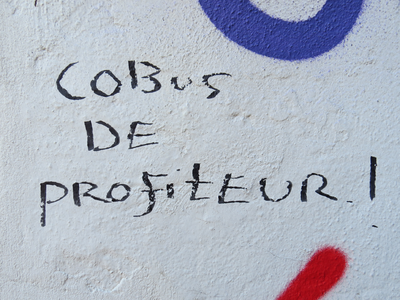 COBUS
DE
PROFITEUR!